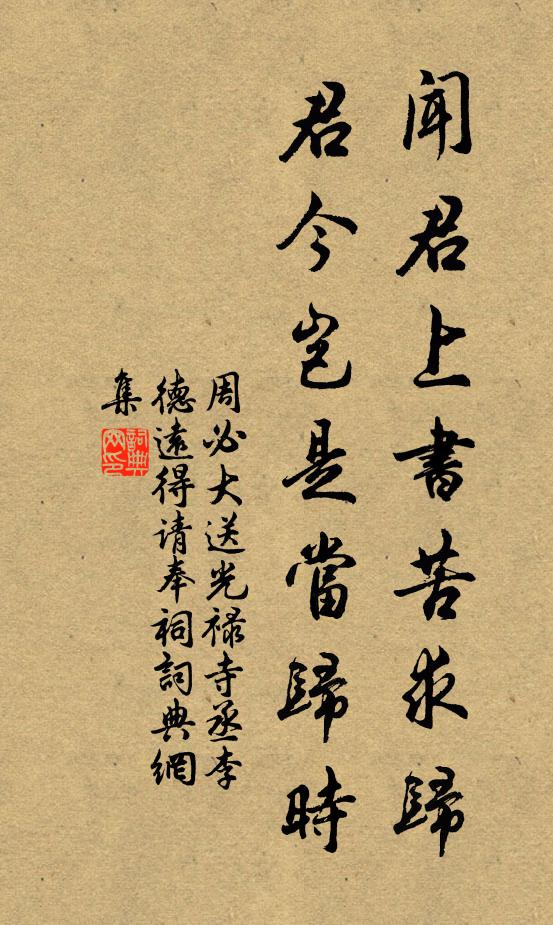 闻君上書苦求歸
君今岂是當歸時
周必大送光禄寺丞李
德遠得请奉祠詞典網
集
詞典網印